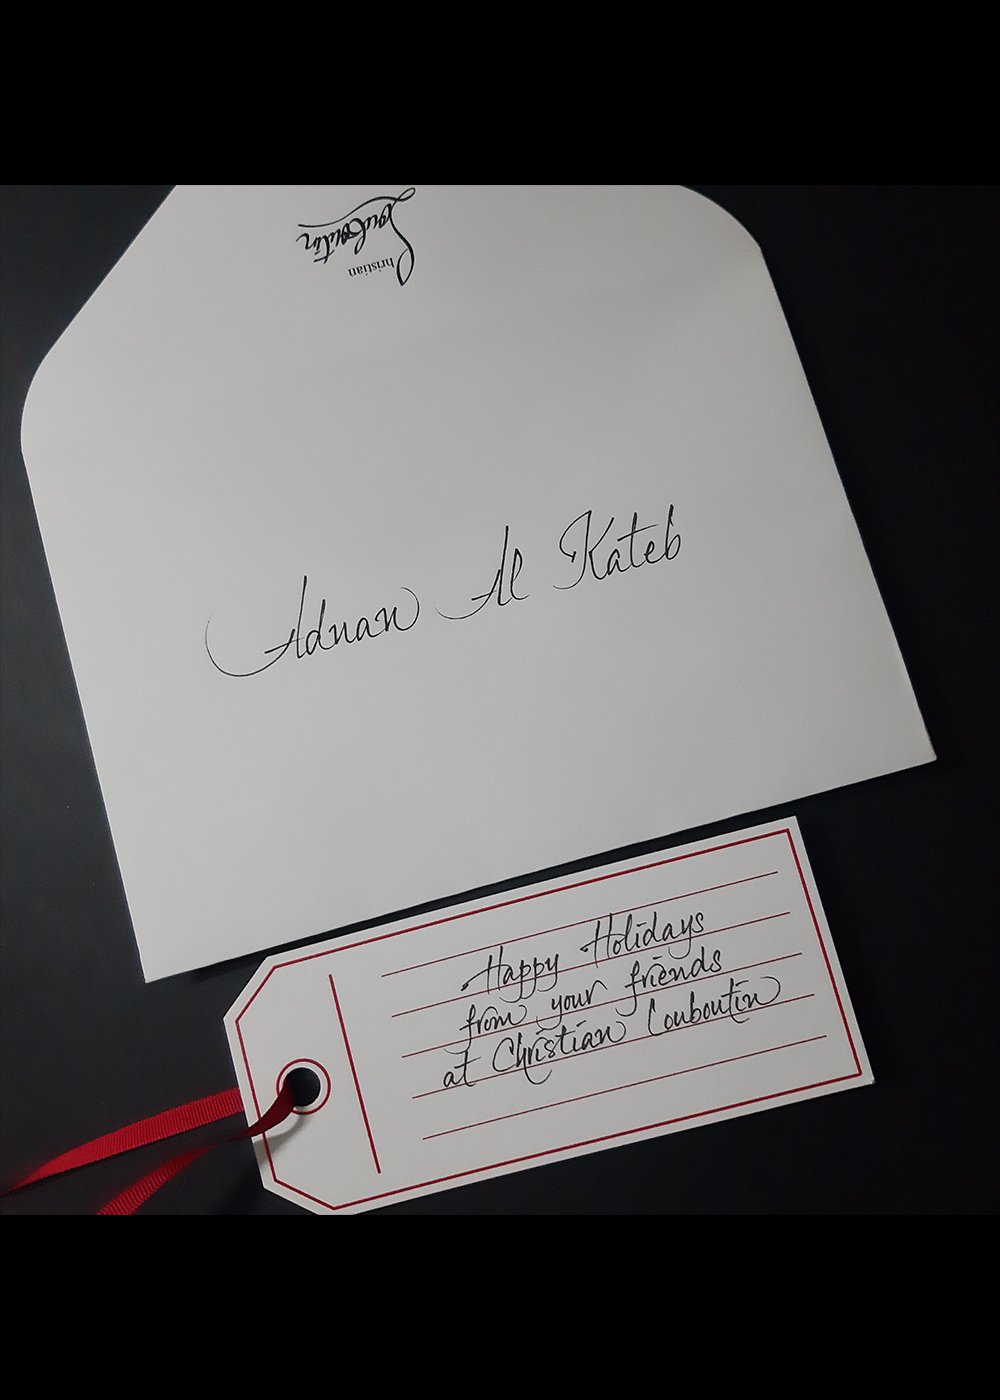 Christian
Louboutin
Adnan Al Kateb
Happy Holidays
from your friends
at Christian Louboutin